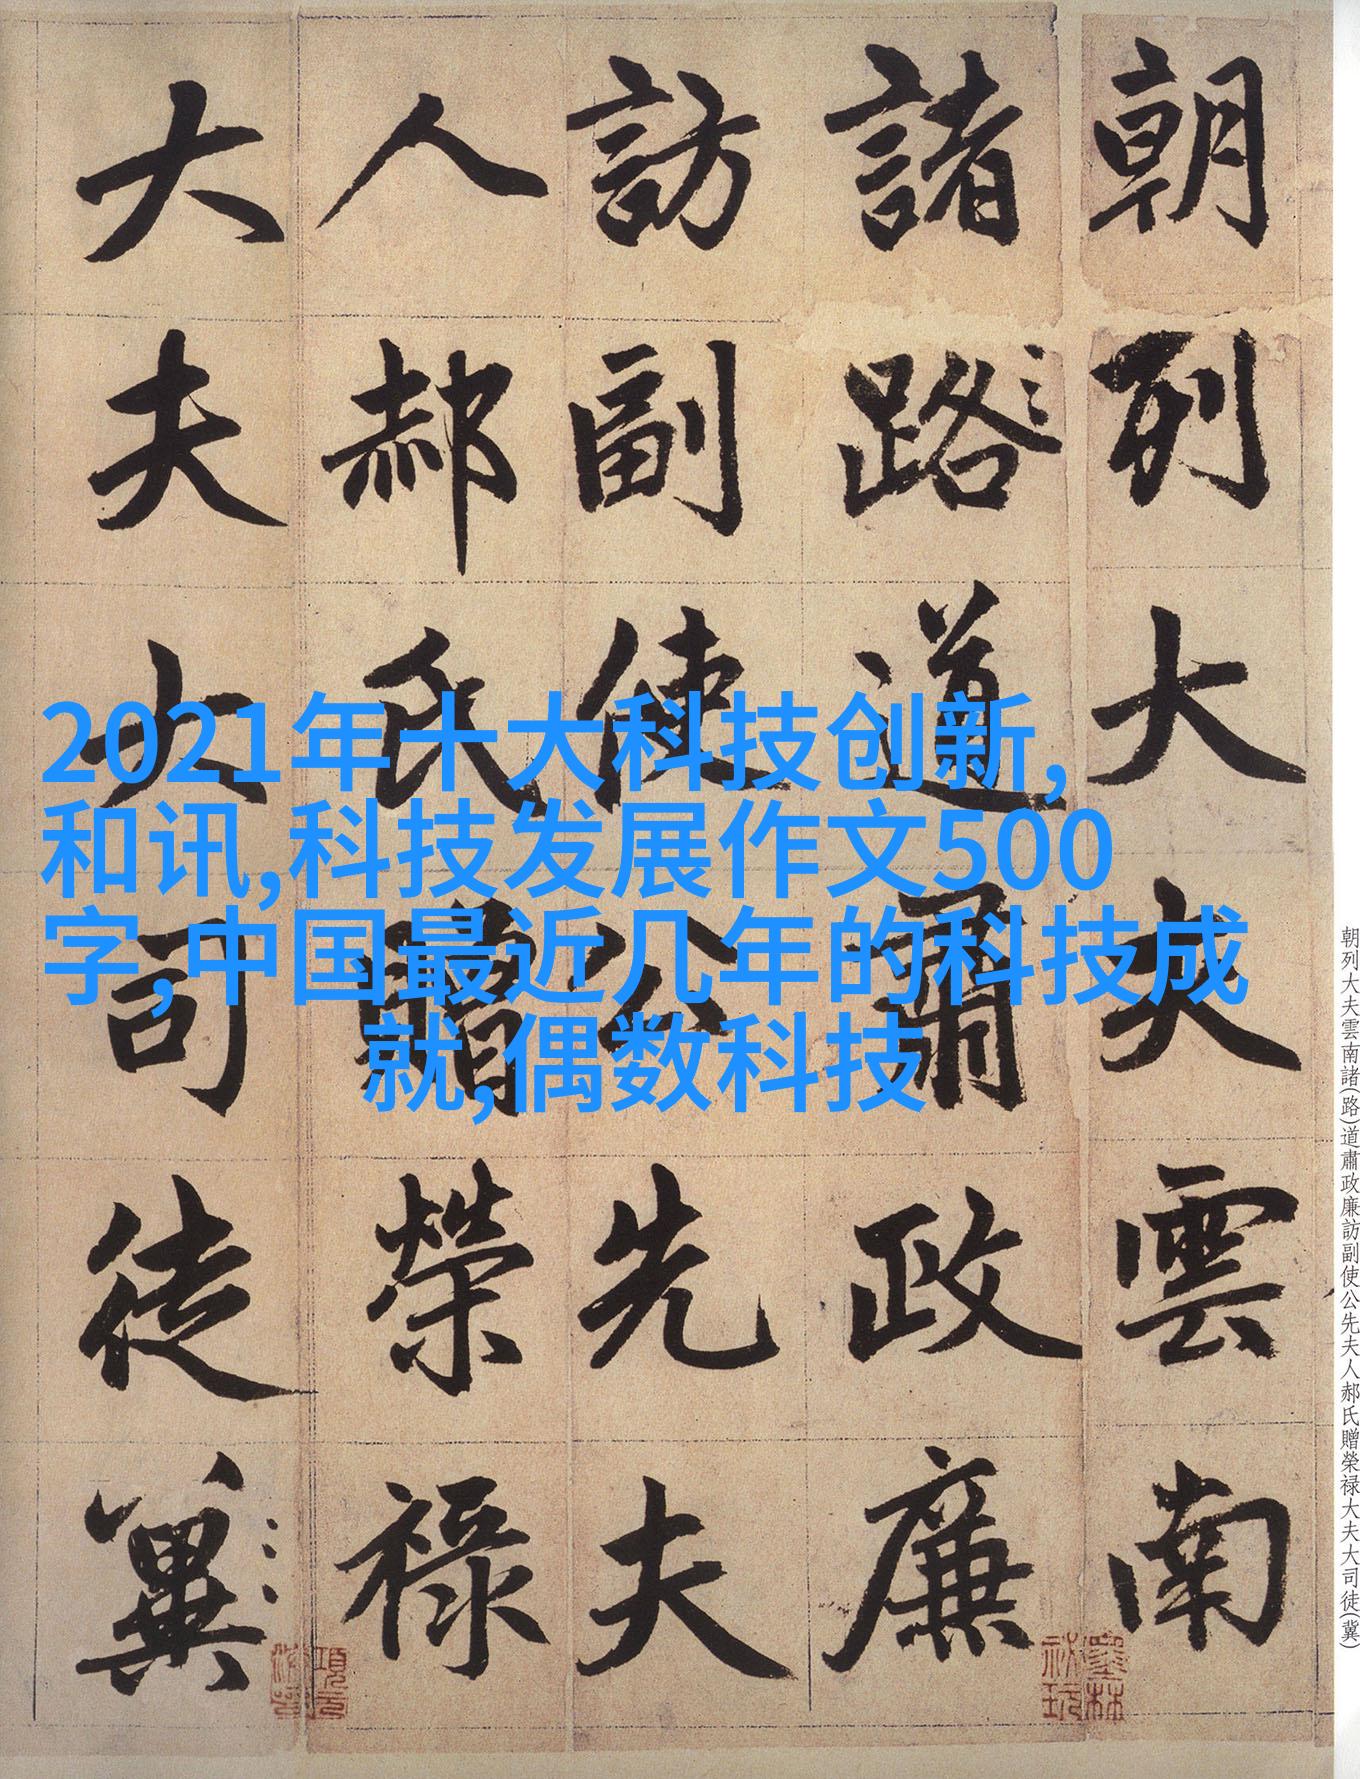 朝列大夫雲南
諸路道肅政廉
訪副使公先夫
人郝氏贈榮禄
大夫大司徒冀
2021年十大科技创新,
和讯,科技发展作文500
字,中国最近几年的科技成
就,偶数科技
朝列大夫雲南諸(路)道肅政廉訪副使公先夫人郝氏贈榮禄大夫大司徒(冀)